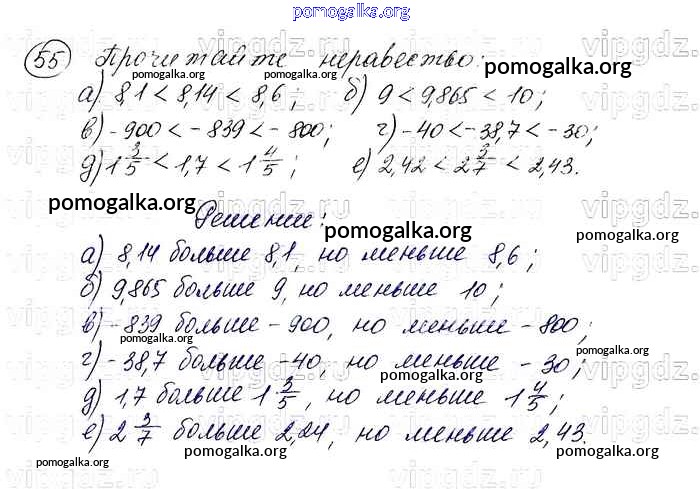 pomogalka.org
55 Прочитайте неравество:
а) 8,1 < 8,14 < 8,6; б) 9 < 9,865 < 10;
в) -900 < -839 < -800; г) -40 < -38,7 < -30;
д) 1 3/5 < 1,7 < 1 4/5; е) 2,42 < 2 3/7 < 2,43.
Решение:
а) 8,14 больше 8,1, но меньше 8,6;
б) 9,865 больше 9, но меньше 10;
в) -839 больше -900, но меньше -800;
г) -38,7 больше -40, но меньше -30;
д) 1,7 больше 1 3/5, но меньше 1 4/5;
е) 2 3/7 больше 2,24, но меньше 2,43.
pomogalka.org
pomogalka.org
pomogalka.org
pomogalka.org
pomogalka.org
pomogalka.org
pomogalka.org
pomogalka.org
pomogalka.org
pomogalka.org
pomogalka.org
pomogalka.org
pomogalka.org
vipgdz.ru
vipgdz.ru
vipgdz.ru
vipgdz.ru